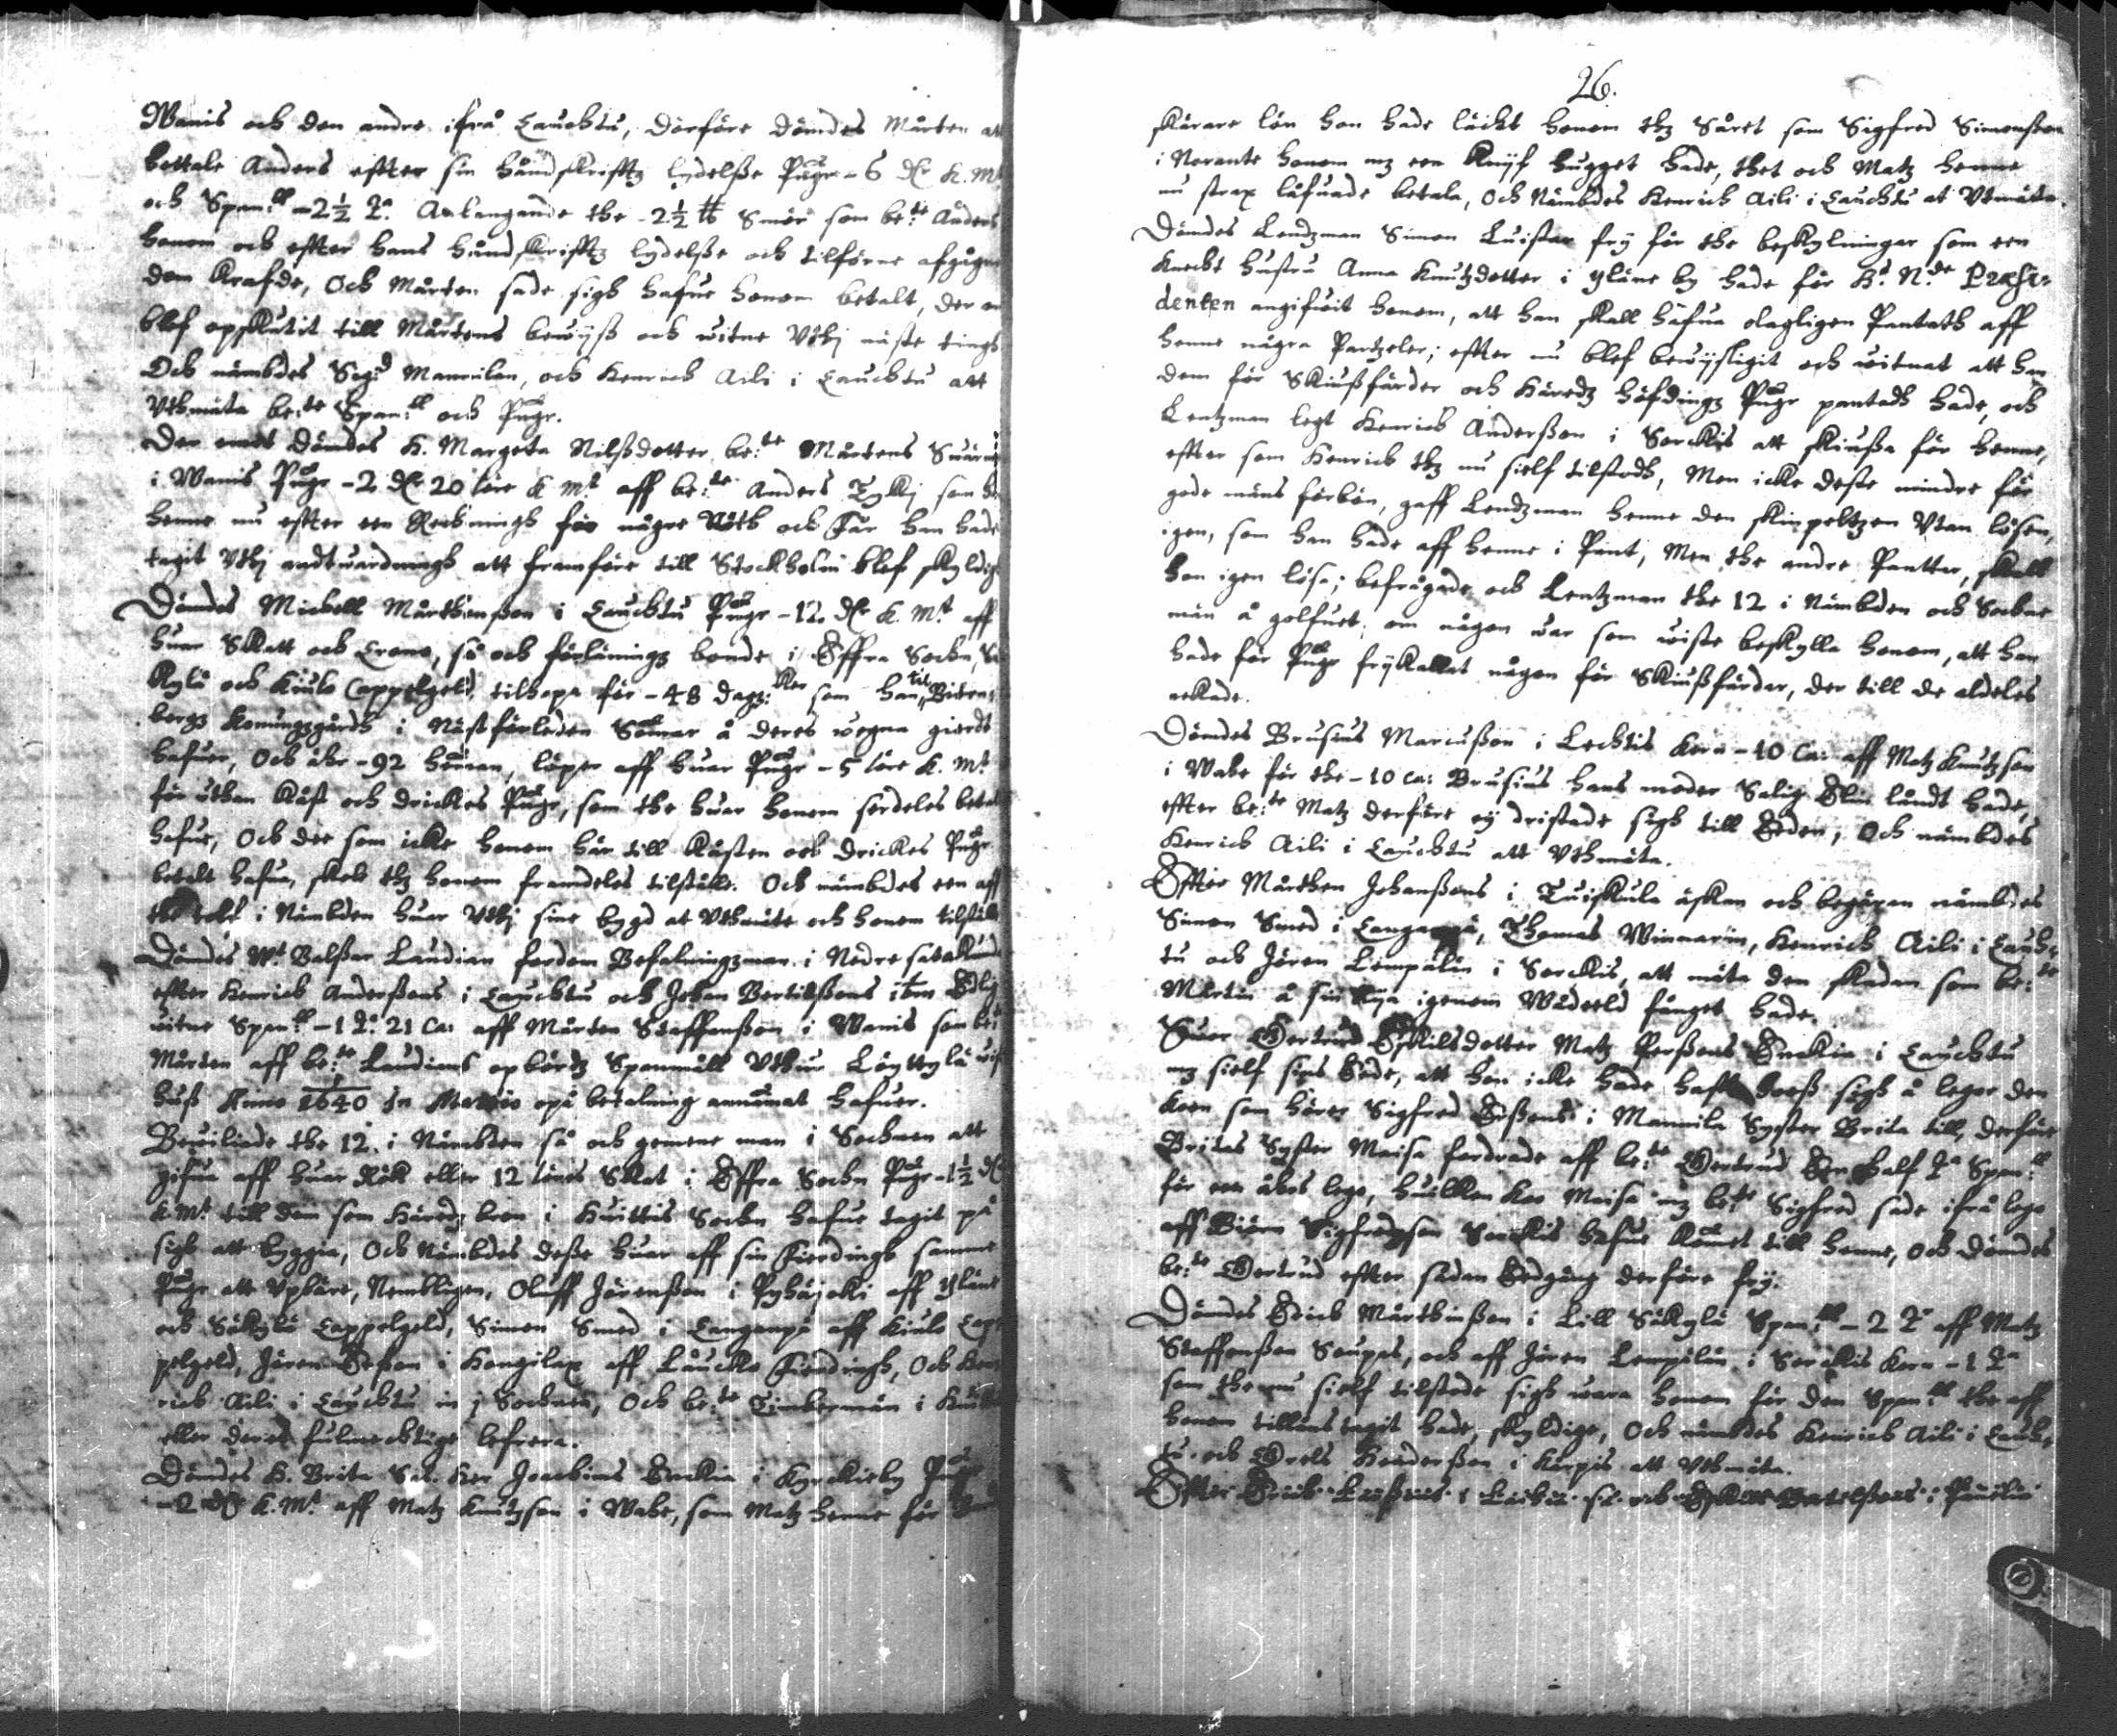 Wanis och den andre ifrå Lauchtu, därföre dömdes Mårten att
bettale Anders effter sin håndskrifftz lydelße Pngr - 6 dlr K. Mt
och Span:ll - 2½ t:a Anlangande the - 2½ ℔ Smör som be:te Anders
honom och effter hans håndskrifftz lydelße och tilförne afgågne
dom krafde, Och Mårten sade sigh hafue honom betalt, der om
blef opskutit till Mårtens bewijß och witne Vthj näste tingh
Och nämbdes Sigd Mannilan, och Henrich Aili i Lauchtu att
Vthmäta be:te Span:ll och Pngr.
Der emot dömdes H. Margeta Nilßdotter be:te Mårtens Swärm
i Wanis Pngr - 2 dlr 20 löre K Mt aff be:te Anders Tykkj som han
henne nu effter een Reckningh för någre Nöth och Får han hade
tagit Vthj andtwardningh att framföre till Stockholm blef skyldig
Dömdes Michell Mårthenßon i Lauchtu Pngr - 12 dlr K. Mt aff
huar Skatt och Crono, så och förläningz bonde i Effra Sochn, Sä
kylä och Kiulo Cappelgeld, tilhopa för - 48 dagz:ker som han til Biörne
borgz Konungzgårdh i Näst förleden Sommar å deres wegna giordt
hafuer, Och ähr - 92 hemman, löper aff huar Pngr - 5 löre K. Mt
för uthan Kåst och drickes Pngr, som the huar honom serdeles betalt
hafue, Och dee som icke honom här till Kåsten och drickes Pngr
betalt hafua, skole thz honom framdeles tilställe. Och nämbdes een aff
the tolf i Nämbden huar Vthj sine bygd at Vthmäte och honom tilställe
Dömdes Wt Balßar Laudian fordom Befalningzman i Nedre satakund
effter Henrich Anderßons i Lauchtu och Johan Bertilßons ibm Edlig
witne Span:ll - 1 t:a 21 ca: aff Mårten Staffanßon i Wanis som be:te
Mårten aff be:te Laudians opbördz Spanmåll Vthur Löyttylä wist
huß Anno 1640 In Martio opå betalning annammat hafuer.
Bewiliade the 12. i Nämbden så och gemene man i Sochnen att
gifua aff huar Rök eller 12 löres Skat i Effra Sochn Pngr - 1½ dlr
K.Mt till dem som Häredz bron i Huittis Sochn hafue tagit på
sigh att byggia, Och Nämbdes deße huar aff sin Fierdingh samme
Pngr att Vpbäre, Nembligen, Oluff Jörenßon i Pyhäjoki aff Yläne
och Säkylä Cappelgeld, Simon Smed i Langanpä aff Kiulo Cap
pelgeld, Jören Erßon i Hongilax aff Låucko Fierdingh, Och Hen
rich Aili i Lauchtu in j Sochnen, Och be:te Timberman i Huittis
eller deres fulmechtige lefrera.
Dömdes H. Brita Sal. Her Joachims Enckia i Kyrckieby Pngr
- 2 dlr K. Mt aff Matz Knutzson i Wabe, som Matz henne för
26.
skärare lön hon hade läckt honom thz Såret som Sigfred Simonßon
i Norante honom mz een Knijf hugget hade, thet och Matz henne
nu strax låfuade betala, Och Nämbdes Henrich Aili i Lauchtu at Vtmäta.
Dömdes Lendzman Simon Luistar frij för the beskylningar som een
Knecht hustru Anna Knutzdotter i Yläne by hade för H:s N:de Præsi-
denten angifuit honom, att han skall håfua olagligen Pantath aff
henne några Partzeler; effter nu blef bewijsligit och witnat att han
dem för Skiußfärder och Häredz höfdingz Pngr pantadh hade, och
Lentzman legt Henrich Anderßon i Sorckis att skiußa för henne,
effter som Henrich thz nu sielf tilstodh, Men icke deste mindre för
gode mäns förbön, gaff Lendzman henne den skinpeltzen Vtan lösen,
igen, som han hade aff henne i Pant, Men the andre Pantter, skall
hon igen lösa; befrågade och Lentzman the 12 i Nämbden och Sochne
män å golfuet, om någon war som wiste beskylla honom, att han
hade för Pngr frijkallat någon för Skiußfärdar, der till de aldeles
neckade.
Dömdes Brusius Marcußon i Lechtis Korn - 10 Ca: aff Matz Knutzson
i Wabe för the - 10 ca: Brusius hans moder Salig Elin låndt hade,
effter be:te Matz derföre eij dristade sigh till Eden, Och nämbdes
Henrich Aili i Lauchtu att Vthmäta.
Effter Mårthen Johanßons i Tuiskula äskan och begäran nämbdes
Simon Smed i Langanpä, Thomas Winnarin, Henrich Aili i Lauch-
tu och Jören Lempälin i Sorckis, att mäta den skadan som be:te
Mårtin å sin Rija igenom Wådeeld fånget hade.
Swor Gertrud Eskilsdotter Matz Perßons Enckia i Lauchtu
mz sielf sins Ede, att hon icke hade hafft hooß sigh å legor den
koen som hörer Sigfred Erßons i Mannila Syster Brita till, derföre
Britas Syster Maisa fordrade aff be:te Gertrud Een half t:a Span:ll
för een åhrs lego, huilken Koo Maisa mz be:te Sigfred sade ifrå lego
aff Biörn Sigfredzson Sorckis hafue kommet till henne, Och dömdes
be:te Gertrud effter sådan Eedgång derföre frij.
Dömdes Erich Mårthinßon i Lill Säkylä Span:ll - 2 t:a aff Matz
Staffanßon Soupas, och aff Jören Lempälin i Sorckis Korn - 1 t:a
som the nu sielf tilstode sigh wara honom för den Span:ll the aff
honom tillåns tagit hade, skyldige, Och nämbdes Henrich Aili i Lauch-
tu och Grels Henderßon i Karpis att Vthmäta.
Effter Erich Larßons i Lechtis sz och Eskill Bertelßons i